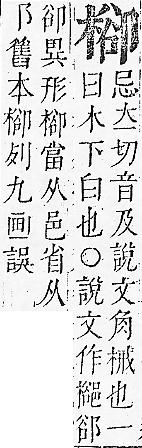 㮞
忌切音及說文角械也一
曰木下白也○說文作郤
卻異形㮞當从邑省从
卩舊本㮞列九画誤